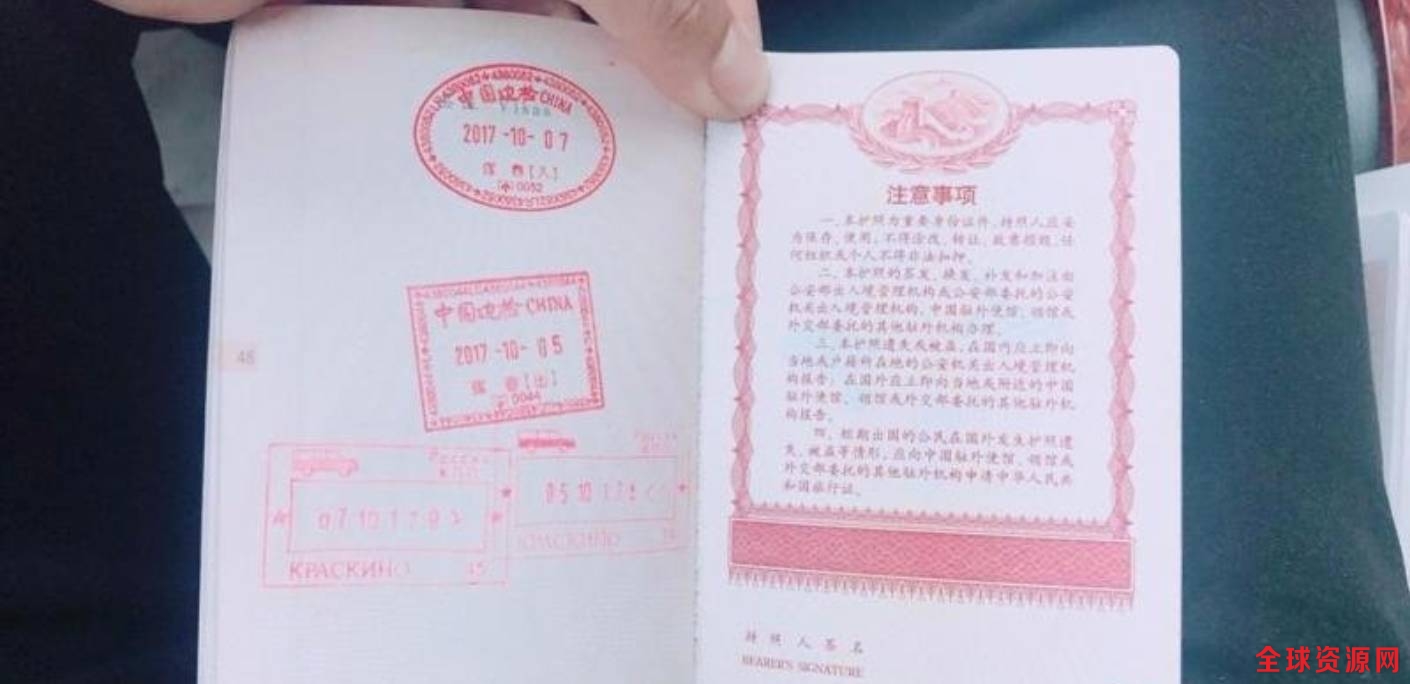 中国边检CHINA
2017-10-07
珲春[入]
0052
中国边检CHINA
2017-10-05
珲春[出]
0044
48
Россия
05 10 17
07 10 17
КРАСКИНО
КРАСКИНО 45
注意事项
一、本护照为重要身份证件,持照人应妥
为保存、使用,不得涂改、转让、故意损毁。任
何组织或个人不得非法扣押。
二、本护照的签发、换发、补发和加注由
公安部出入境管理机构或公安部委托的公安
机关出入境管理机构、中国驻外使馆、领馆或
外交部委托的其他驻外机构办理。
三、本护照遗失或被盗,在国内应立即向
当地或户籍所在地的公安机关出入境管理机
构报告;在国外应立即向当地或附近的中国
驻外使馆、领馆或外交部委托的其他驻外机
构报告。
四、短期出国的公民在国外发生护照遗
失、被盗等情形,应向中国驻外使馆、领馆或
外交部委托的其他驻外机构申请中华人民共
和国旅行证。
持照人签名
BEARER'S SIGNATURE
全球资源网